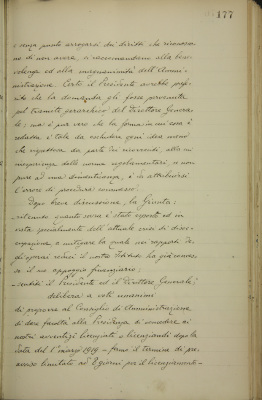 177
e senza punto arrogarsi dei diritti che riconosco-
no di non avere, si raccomandano alla bene-
volenza ed alla magnanimità dell'Ammi-
nistrazione. Certo il Presidente avrebbe prefe-
rito che la domanda gli fosse pervenuta
pel tramite gerarchico del Direttore Genera-
le; ma è pur vero che la forma in cui essa è
redatta è tale da escludere ogni idea meno
che rispettosa da parte dei ricorrenti, alla cui
inesperienza delle norme regolamentari, e non
pure ad una dimenticanza, è da attribuirsi
l'errore di procedura commesso.
Dopo breve discussione, la Giunta:
- ritenuto quanto sovra è stato esposto ed in
vista specialmente dell'attuale crisi di disoc-
cupazione a mitigare la quale nei rapporti de-
gli operai reduci il nostro Istituto ha già conces-
so il suo appoggio finanziario;
- sentito il Presidente ed il Direttore Generale;
delibera a voti unanimi
di proporre al Consiglio di Amministrazione
di dare facoltà alla Presidenza di concedere ai
nostri avventizi licenziati o licenziandi dopo la
data del 1° marzo 1919 - fermo il termine di pre-
avviso limitato ad 8 giorni per il licenziamento -